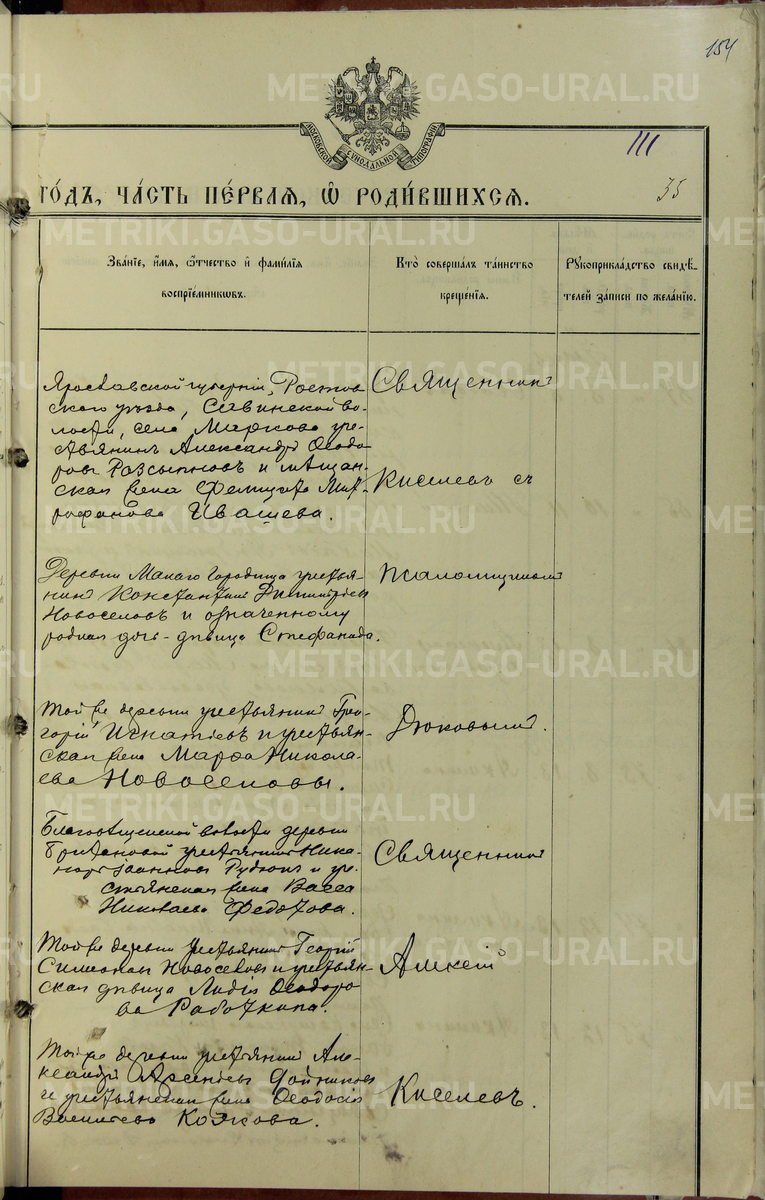 154
МОСКОВСКОЙ СѴНОДАЛЬНОЙ ТИПОГРАФІИ
111
35
ГО́ДЪ, ЧА́СТЬ ПЕ́РВАЯ, Ѽ РОДИ́ВШИХСЯ.
Зва́нїе, и́мя, ѻ҆́тчество и҆ фами́лїя
воспрїе́мникѡвъ.
Кто̀ соверша́лъ та́инство
креще́нїя.
Рꙋкоприкла́дство свидѣ́-
телей за́писи по жела́нїю.
Ярославской губерніи, Ростов
скаго уѣзда, Савинской во-
лости, села Маркова кре-
стьянинъ Александръ Ѳеодо
ровъ Разсыпновъ и мѣщан-
ская жена Фелицата Мит-
рофанова Ивашева.
Священникъ
Киселевъ съ
псаломщикомъ
Дюковымъ.
Деревни Малаго Городища крестья-
нинъ Константинъ Димитріевъ
Новоселовъ и означенному
родная дочь - дѣвица Стефанида.
Той же деревни крестьянинъ Гри-
горій Игнатіевъ и крестьян-
ская жена Марѳа Никола-
ева Новоселовы.
Благовѣщенской волости деревни
крестьянинъ Ника-
норъ Іоанновъ и кре-
стьянская жена Васса
Николаева Федотова.
Священникъ
Алексій
Киселевъ.
Той же деревни крестьянинъ Георгій
Симеоновъ Новоселовъ и крестьян-
ская дѣвица Лидія Ѳеодоро-
ва Работкина.
Той же деревни крестьянинъ Але-
ксандръ Арсеніевъ
и крестьянская жена Ѳеодосія
Васильева Козкова.
METRIKI.GASO-URAL.RU